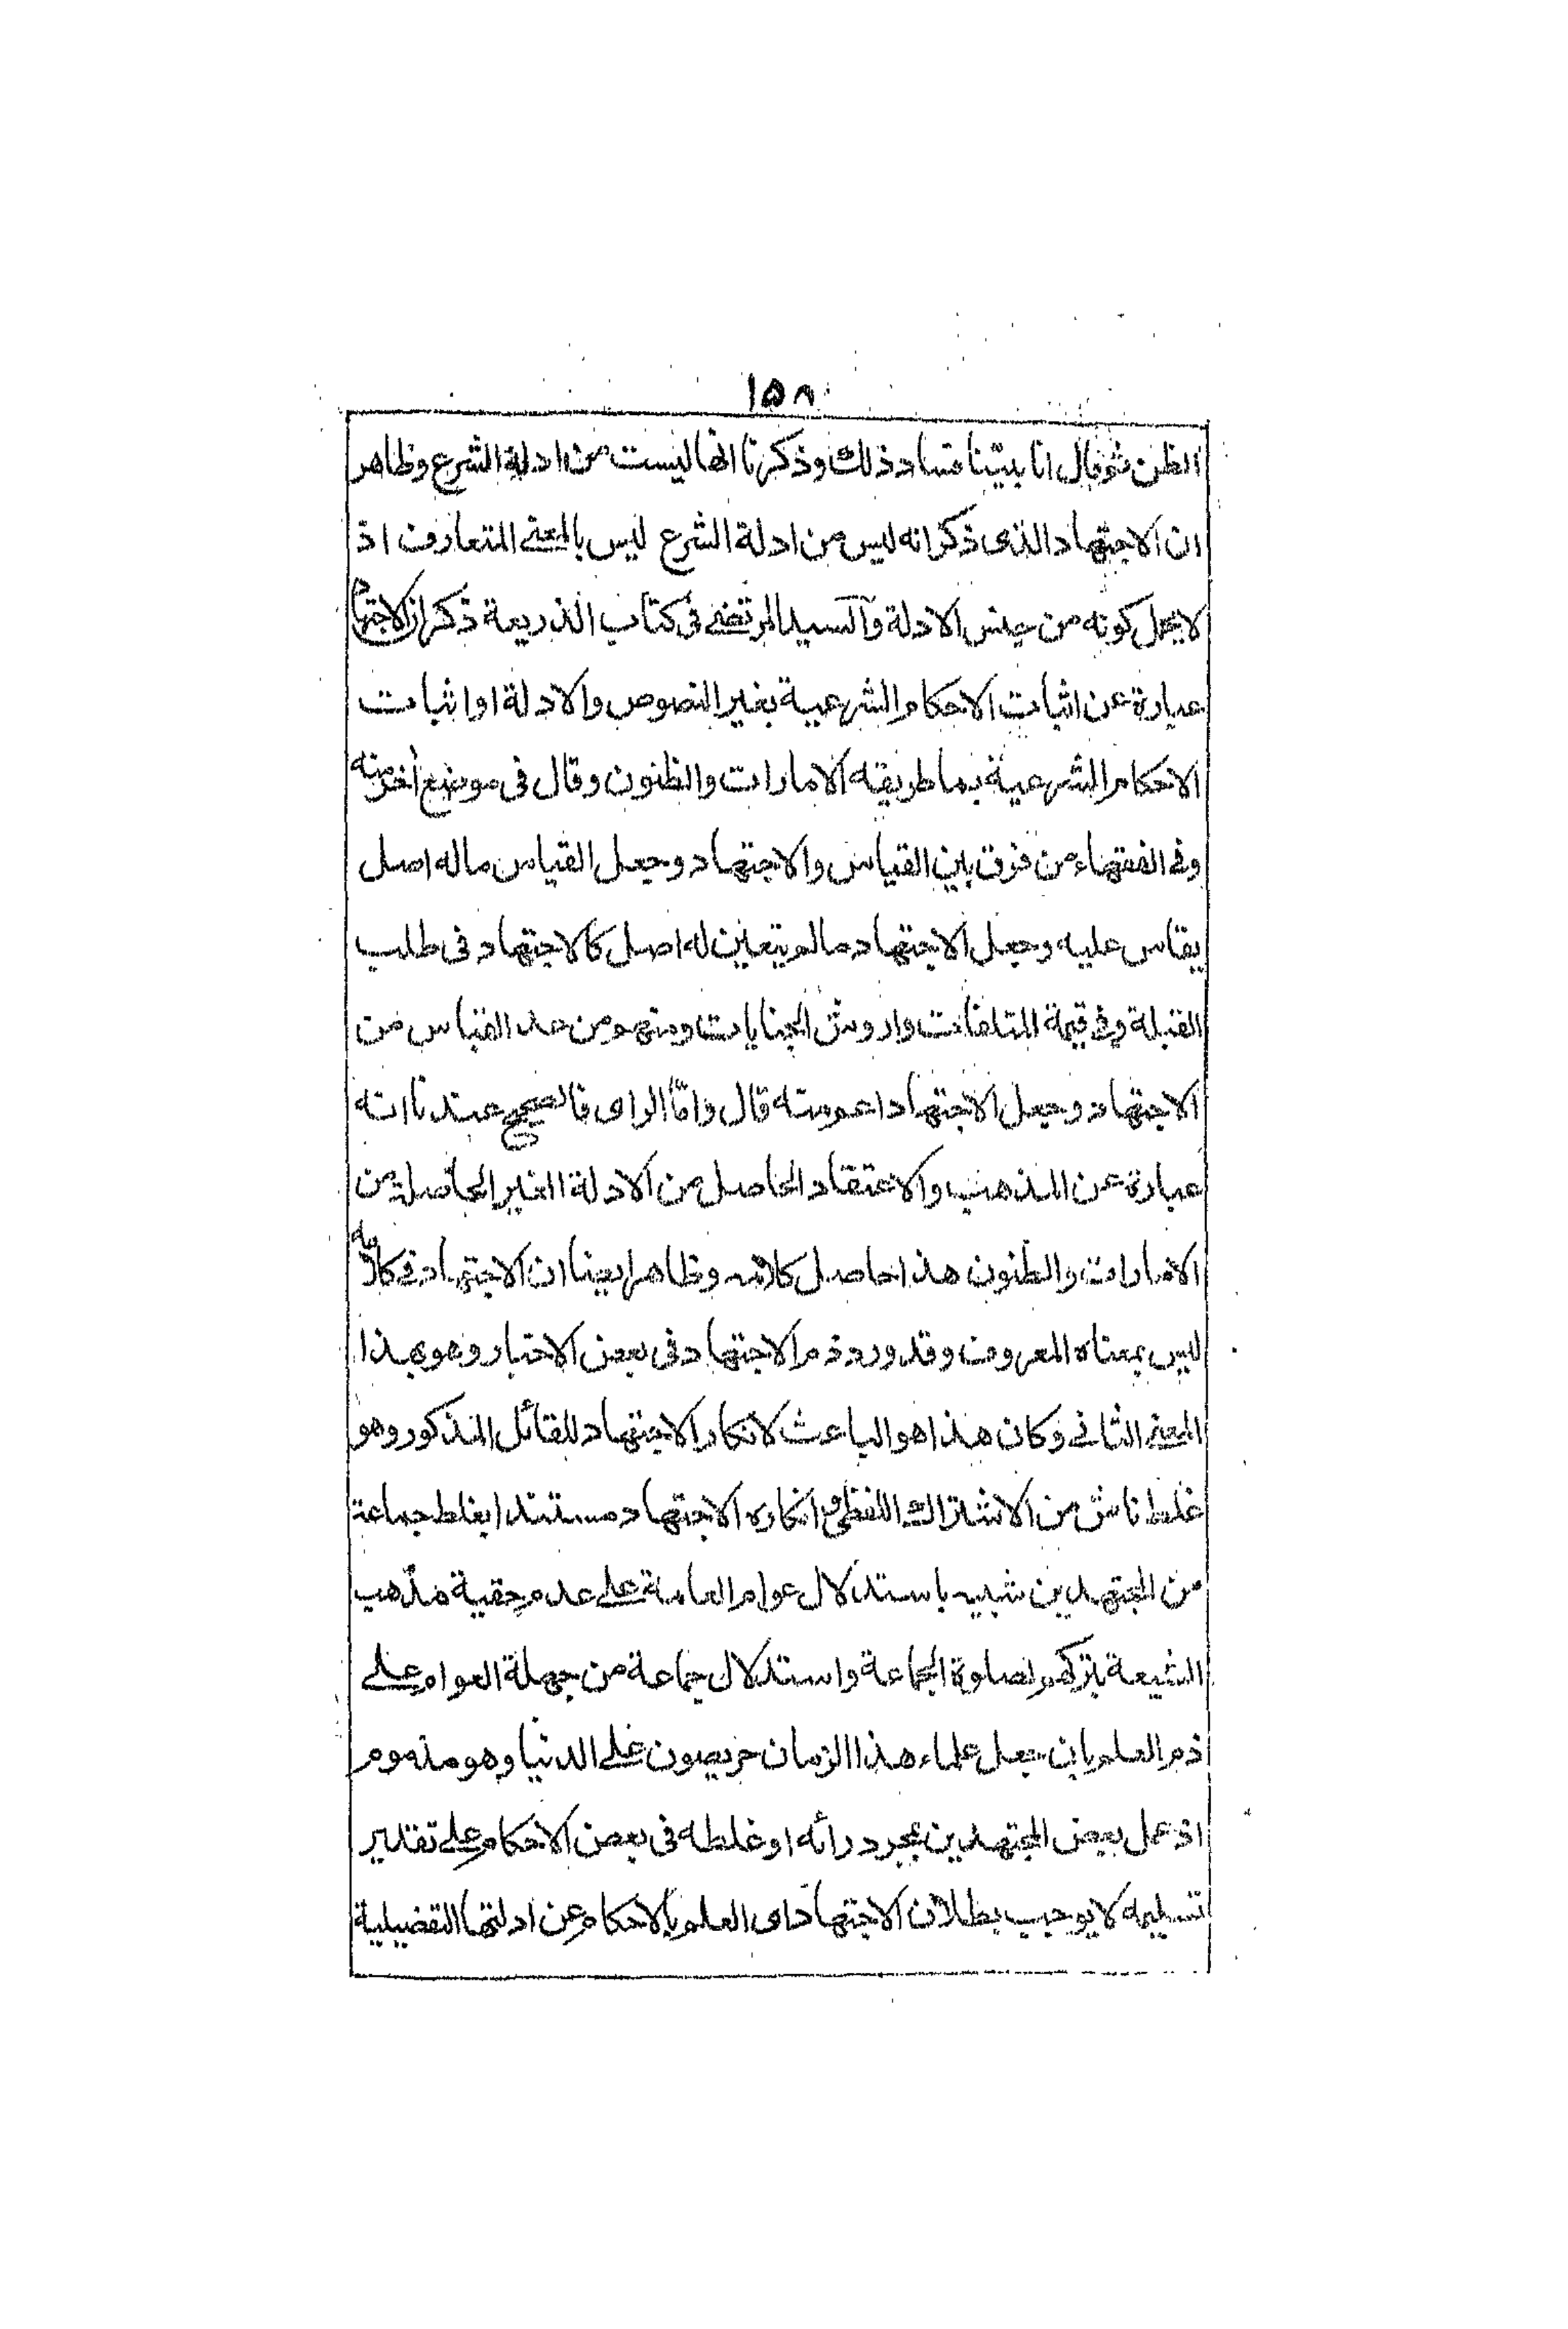 ۱۵۸
الظن ثم قال انا بيّنا فساد ذلك وذكرنا انها ليست من ادلة الشرع وظاهر
ان الاجتهاد الذى ذكر انه ليس من ادلة الشرع ليس بالمعنى المتعارف اذ
لا يحمل كونه من جنس الادلة وآلسيد المرتضى فى كتاب الذريعة ذكر ان الاجتهاد
عبارة عن اثبات الاحكام الشرعية بغير النصوص والادلة او اثبات
الاحكام الشرعية بما طريقه الامارات والظنون وقال فى موضع أخر منه
وفى الفقهاء من فرق بين القياس والاجتهاد وجعل القياس ماله اصل
يقاس عليه وجعل الاجتهاد ما لم يتعين له اصل كالاجتهاد فى طلب
القبلة وفى قيمة المتلفات واروش الجنايات ومنهم من عد القياس من
الاجتهاد وجعل الاجتهاد اعم منه قال وامّا الراى فالصحيح عندنا انه
عبارة عن المذهب والاعتقاد الحاصل من الادلة الغير الحاصلة من
الامارات والظنون هذا حاصل كلامه وظاهر ايضا ان الاجتهاد فى كلامه
ليس بمعناه المعروف وقد ورد ذم الاجتهاد فى بعض الاخبار وهو بهذا
المعنى الثانى وكان هذا هو الباعث لانكار الاجتهاد للقائل المذكور وهو
غلط ناش من الاشتراك اللفظى و انكاره الاجتهاد مستندا بغلط جماعة
من المجتهدين شبيه باستدلال عوام العامة على عدم حقية مذهب
الشيعة بتركهم لصلوة الجماعة واستدلال جماعة من جهلة العوام على
ذم العلم بان جعل علماء هذا الزمان حريصون على الدنيا وهو مذموم
اذ عمل بعض المجتهدين بمجرد رائه او غلطه فى بعض الاحكام على تقدير
تسليمه لا يوجب بطلان الاجتهاد اى العلم بالاحكام عن ادلتها التفضيلية